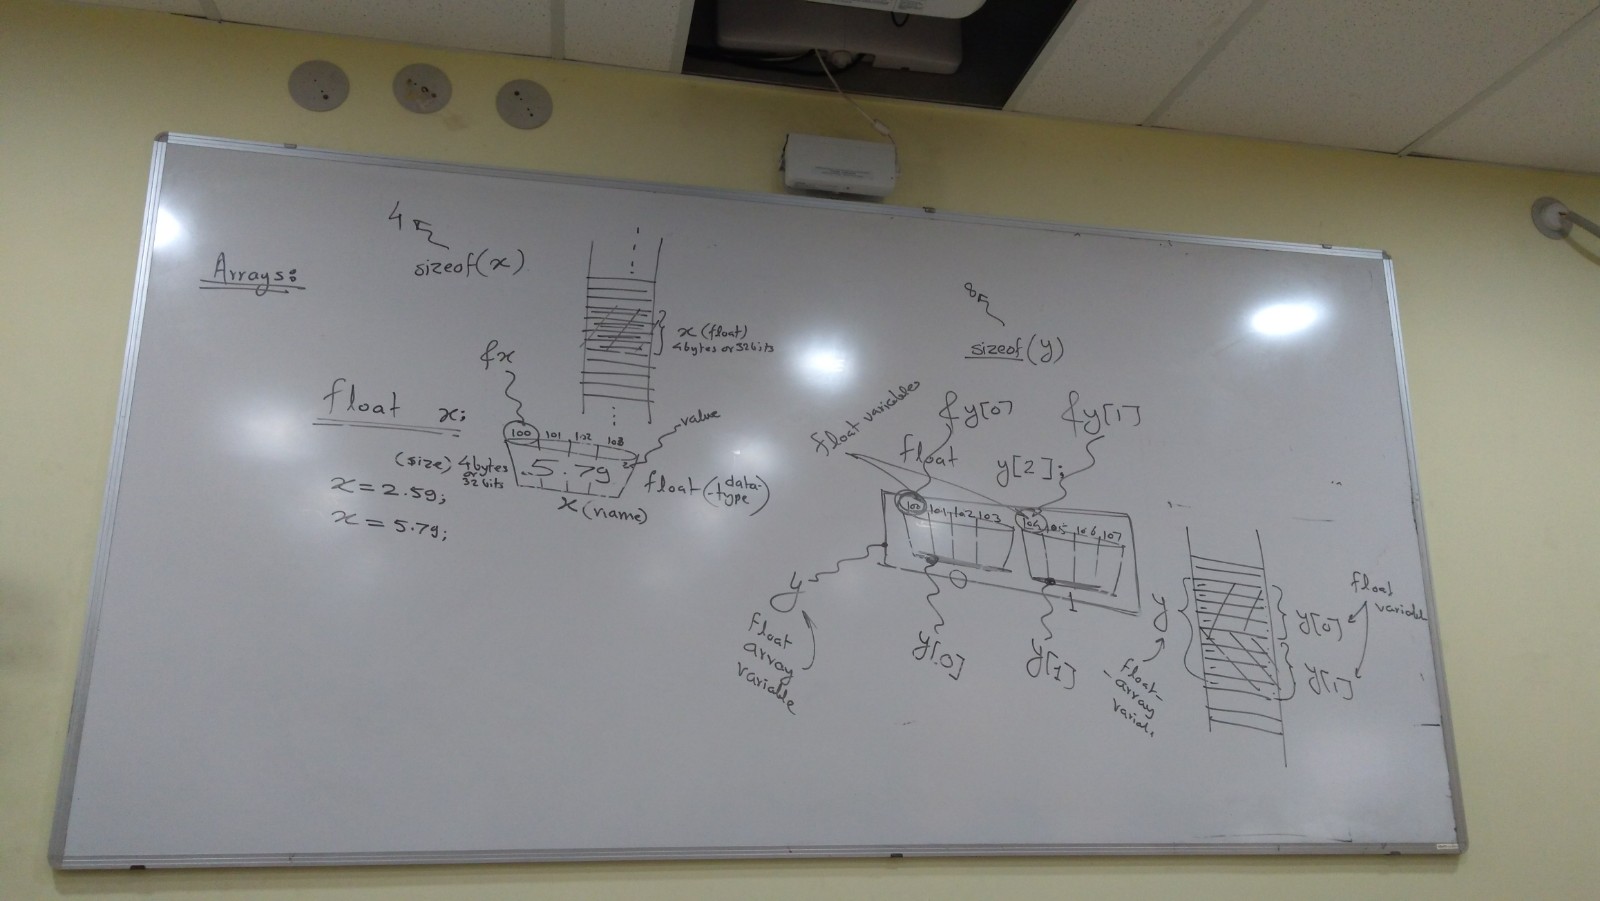 Arrays:
4
sizeof(x)
x (float)
4bytes or 32bits
&x
float x;
100 101 102 103
value
(size) 4bytes
or
32bits
5.79
float (data-
-type)
x (name)
x = 2.59;
x = 5.79;
8
sizeof(y)
float variables
&y[0]
&y[1]
float y[2];
100 101 102 103
104 105 106 107
0
1
y
float
array
variable
y[0]
y[1]
y
float-
-array
variable
y[0]
y[1]
float
variable